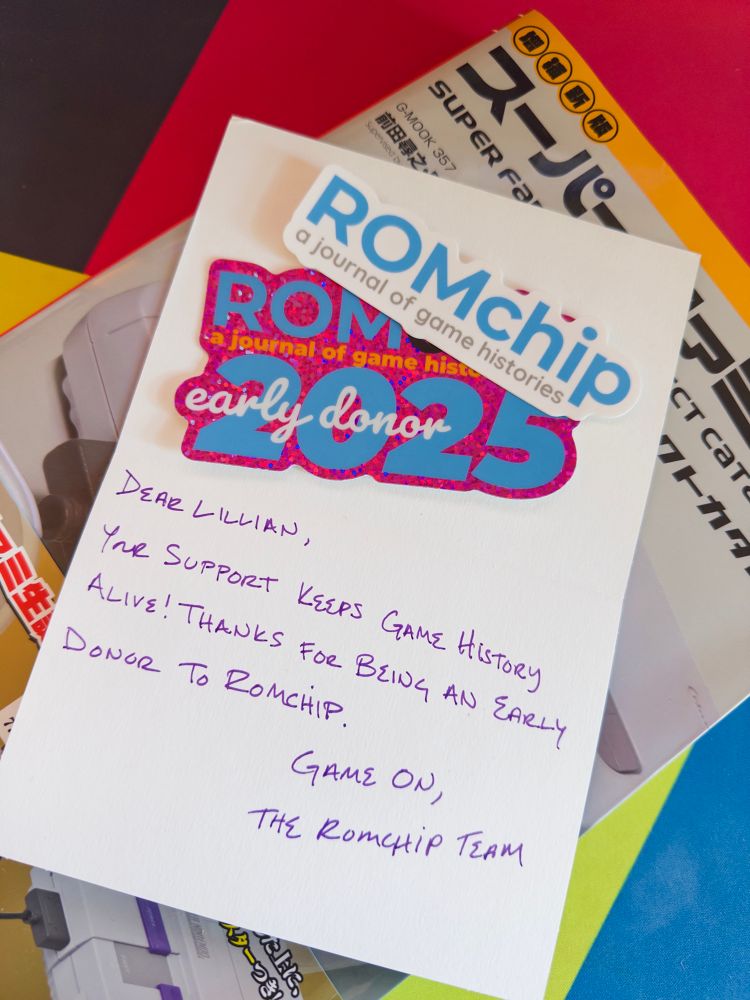 増補新版
スーパー
G-MOOK 357
前田尋之
Supervised by
SUPER Fa
ファミ
CT CaTa
クトカタ
ROMchip
a journal of game histories
ROM
a journal of game histo
2025
early donor
DEAR LILLIAN,
YOUR SUPPORT KEEPS GAME HISTORY
ALIVE! THANKS FOR BEING AN EARLY
DONOR TO ROMCHIP.
GAME ON,
THE ROMCHIP TEAM